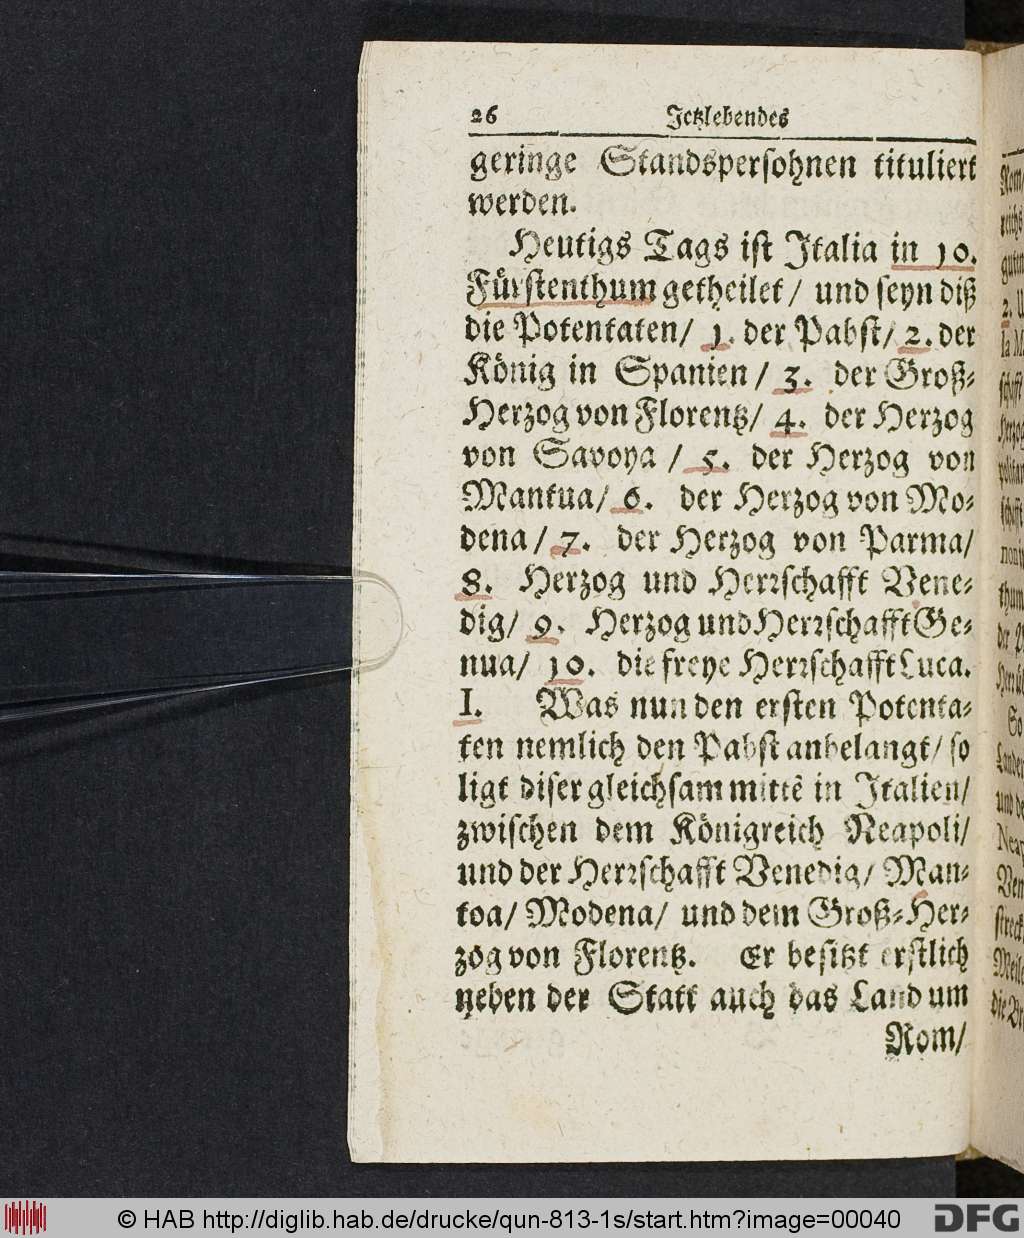 26 Jetzlebendes
geringe Standspersohnen tituliert
werden.
Heutigs Tags ist Italia in 10.
Fürstenthum getheilet / und seyn diß
die Potentaten / 1. der Pabst / 2. der
König in Spanien / 3. der Groß-
Herzog von Florentz / 4. der Herzog
von Savoya / 5. der Herzog von
Mantua / 6. der Herzog von Mo-
dena / 7. der Herzog von Parma /
8. Herzog und Herrschafft Vene-
dig / 9. Herzog und Herrschafft Ge-
nua / 10. die freye Herrschafft Luca.
I. Was nun den ersten Potenta-
ten nemlich den Pabst anbelangt / so
ligt diser gleichsam mittẽ in Italien /
zwischen dem Königreich Neapoli /
und der Herrschafft Venedig / Man-
toa / Modena / und dem Groß-Her-
zog von Florentz. Er besitzt erstlich
neben der Statt auch das Land um
Rom /
© HAB http://diglib.hab.de/drucke/qun-813-1s/start.htm?image=00040
DFG